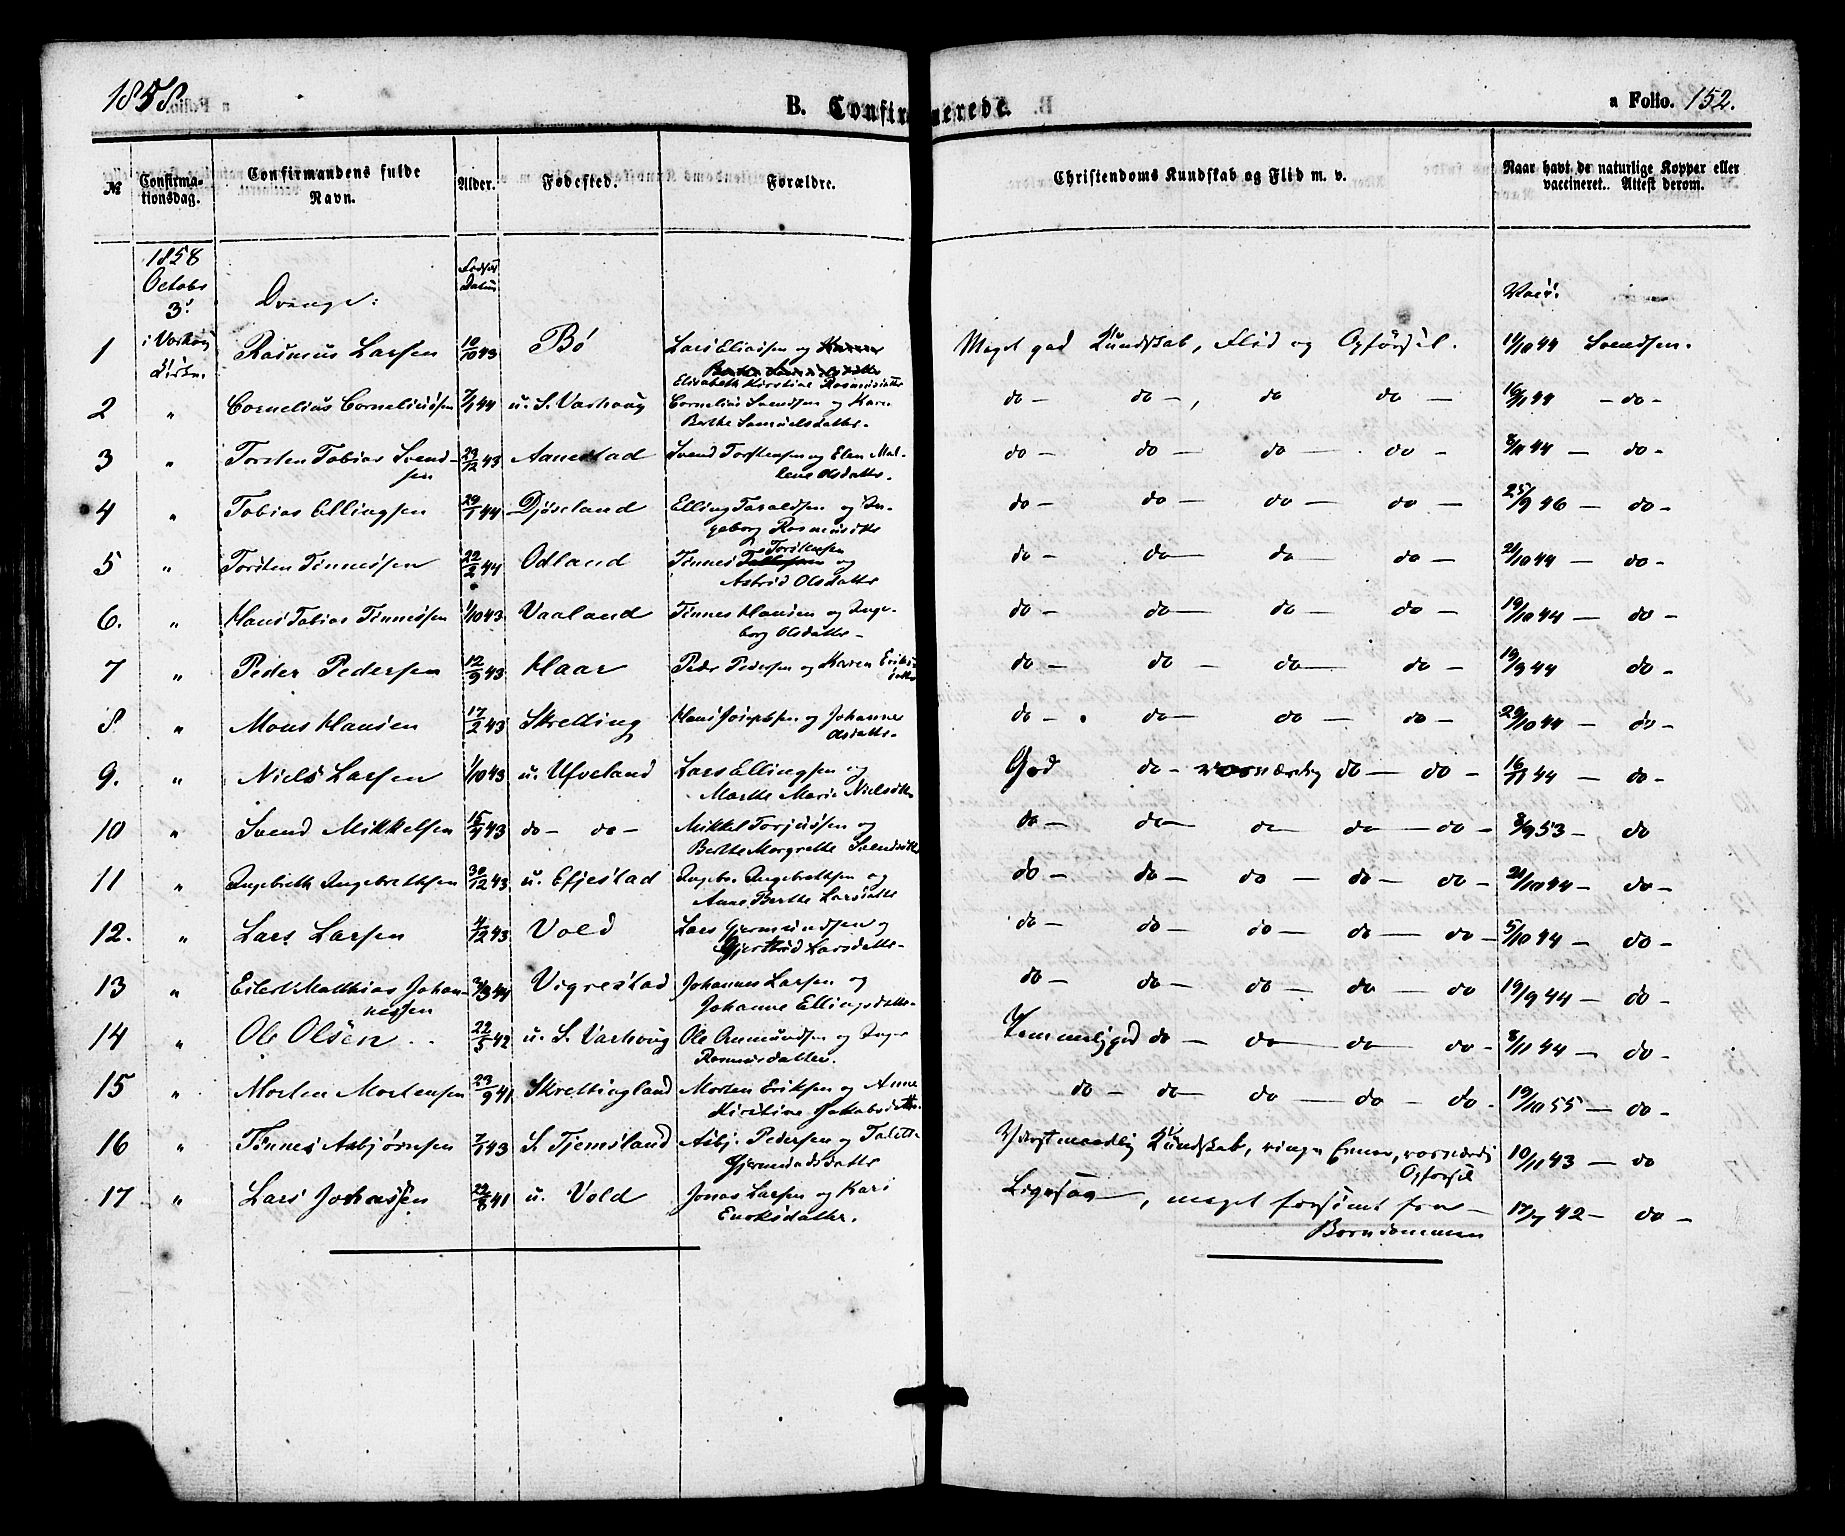 1858.
B. Confirmerede.
a Folio. 152.
№ Confirma-tionsdag. Confirmandens fulde Navn. Alder. Fødested. Forældre. Christendoms Kundskab og Flid m. v. Naar havt de naturlige Kopper eller vaccineret. Attest derom.
1858
Octobr
3.
Drenge:
Fødsels
Datum
Vacc.
1 i Varhoug Kirke. Rasmus Larsen 10/10 43 Bø Lars Eliassen og Elisabeth Kirstine Rasmusdatter Meget god Kundskab, Flid og Opførsel. 11/10 44 Svendsen.
2 " Cornelius Corneliussen 7/1 44 u. S. Varhoug Cornelius Svendsen og Karen Berthe Samuelsdatter. do - do -, do do - 16/11 44 - do -
3 " Torsten Tobias Svendsen 23/12 43 Aanestad Svend Torstensen og Elen Malene Olsdatter. do - do - do - do - 8/11 44 - do -
4 " Tobias Ellingsen 29/1 44 Djøseland Elling Taraldsen og Ingeborg Rasmusdtr do - do - do - do - 25/9 46 - do -
5 " Torsten Tønnessen 22/2 44 Odland Tønnes Torstensen og Astrid Olsdatter do - do - do - do - 21/10 44 - do -
6. " Hans Tobias Tønnessen 1/10 43 Vaaland Tønnes Hansen og Ingeborg Olsdatter - do - do - do - do - 19/10 44 - do -
7 " Peder Pedersen 12/9 43 Haar Peder Pedersen og Karen Eriksdatter do - do - do - do - 19/9 44 do -
8 " Mons Hansen 17/2 43 Skretting Hans Josephsen og Johanne Olsdatter. do - do - do - do - 29/10 44 - do -
9. " Niels Larsen 1/10 43 u. Ufveland Lars Ellingsen og Marthe Marie Nielsdtr God do - do - do - 16/11 44 - do -
10 " Svend Mikkelsen 15/4 43 do - do - Mikkel Torjussen og Berthe Margrethe Svendsdtr do - do - do - do - do - 8/9 53 - do
11 " Ingebreth Ingebrethsen 30/12 43 u. Efjestad Ingebr. Ingebrethsen og Anne Berthe Larsdatter do - do - do - do - do - 21/10 44 - do -
12. " Lars Larsen 4/12 43 Vold Lars Gjermundsen og Gjertrud Larsdatter - do - do - do - do - do - 5/10 44 - do -
13 " Eilert Matthias Johannessen 3/3 44 Vigrestad Johannes Larsen og Johanne Ellingsdatter do - do - do - do - do 19/9 44 - do -
14 " Ole Olsen 22/5 42 u. S. Varhoug Ole Aamundsen og Inger Rasmusdatter. Temmelig god do - do - do - do - 8/11 44 - do -
15 " Morten Mortensen 23/9 41 Skrettingland Morten Eriksen og Anne Kirstine Jakobsdatter. do - do - do - do - do - 19/10 55 - do -
16 " Tønnes Asbjørnsen 7/1 43 S. Tjemsland Asbj. Pedersen og Talette Gjermundsdatter Kundskab, ringe Evner, Opførsel 10/11 43 - do
17 " Lars Johnsen 22/8 41 u. Vold Jonas Larsen og Kari Enoksdatter. Ligesaa, meget forsømt fra Barndommen 17/7 42 - do -